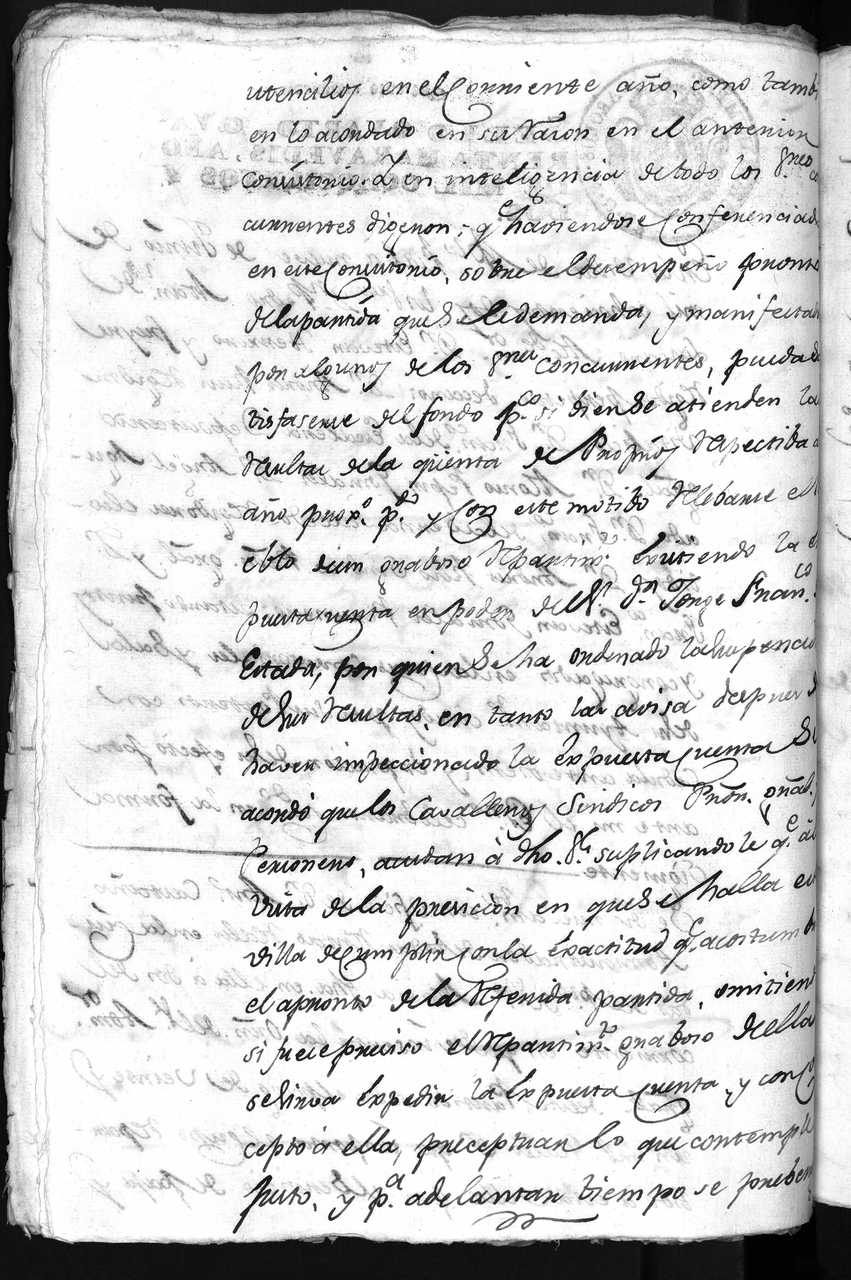 utencilios en el Corriente año, como tamb
en lo acordado en su Raron en el anterior
Consistorio. Y en inteligencia de todo los S.res co
currentes digeron; q.e haviendose Conferenciado
en este Consistorio, sobre el desempeño pronto
de la partida que se le demanda, y manifestado
por algunos de los S.res concurrentes, pueda sa
tisfaserse del fondo p.co si diense atienden la
Resultar de la qüenta de Propios Respectiba a
año prox.o p.do y con este motibo Relebarse el
eblo de un graboso Repartim.to Existiendo la e
puesta qventa en poder de el S.r d.n Jorge Fran.co
Estada, por quien se ha ordenado la suspencio
de sus Resultas, en tanto las avisa despues d
haver inspeccionado la Expuesta Cuenta Se
acordó que los Cavalleros Sindicos Prór. gral. y
Personero, acudan à dho. S.r suplicando le q.e à
Vista de la presicion en que se halla est
villa de Cumplir con la Exactitud q.e acostumb
el apronto de la Referida partida, omitiend
si fuese presiso el Repartim.to graboso de ella
se sirva Expedir la Expuesta Cuenta, y con co
cepto à ella, preceptuar lo que contemple
justo, y p.a adelantar tiempo se preben